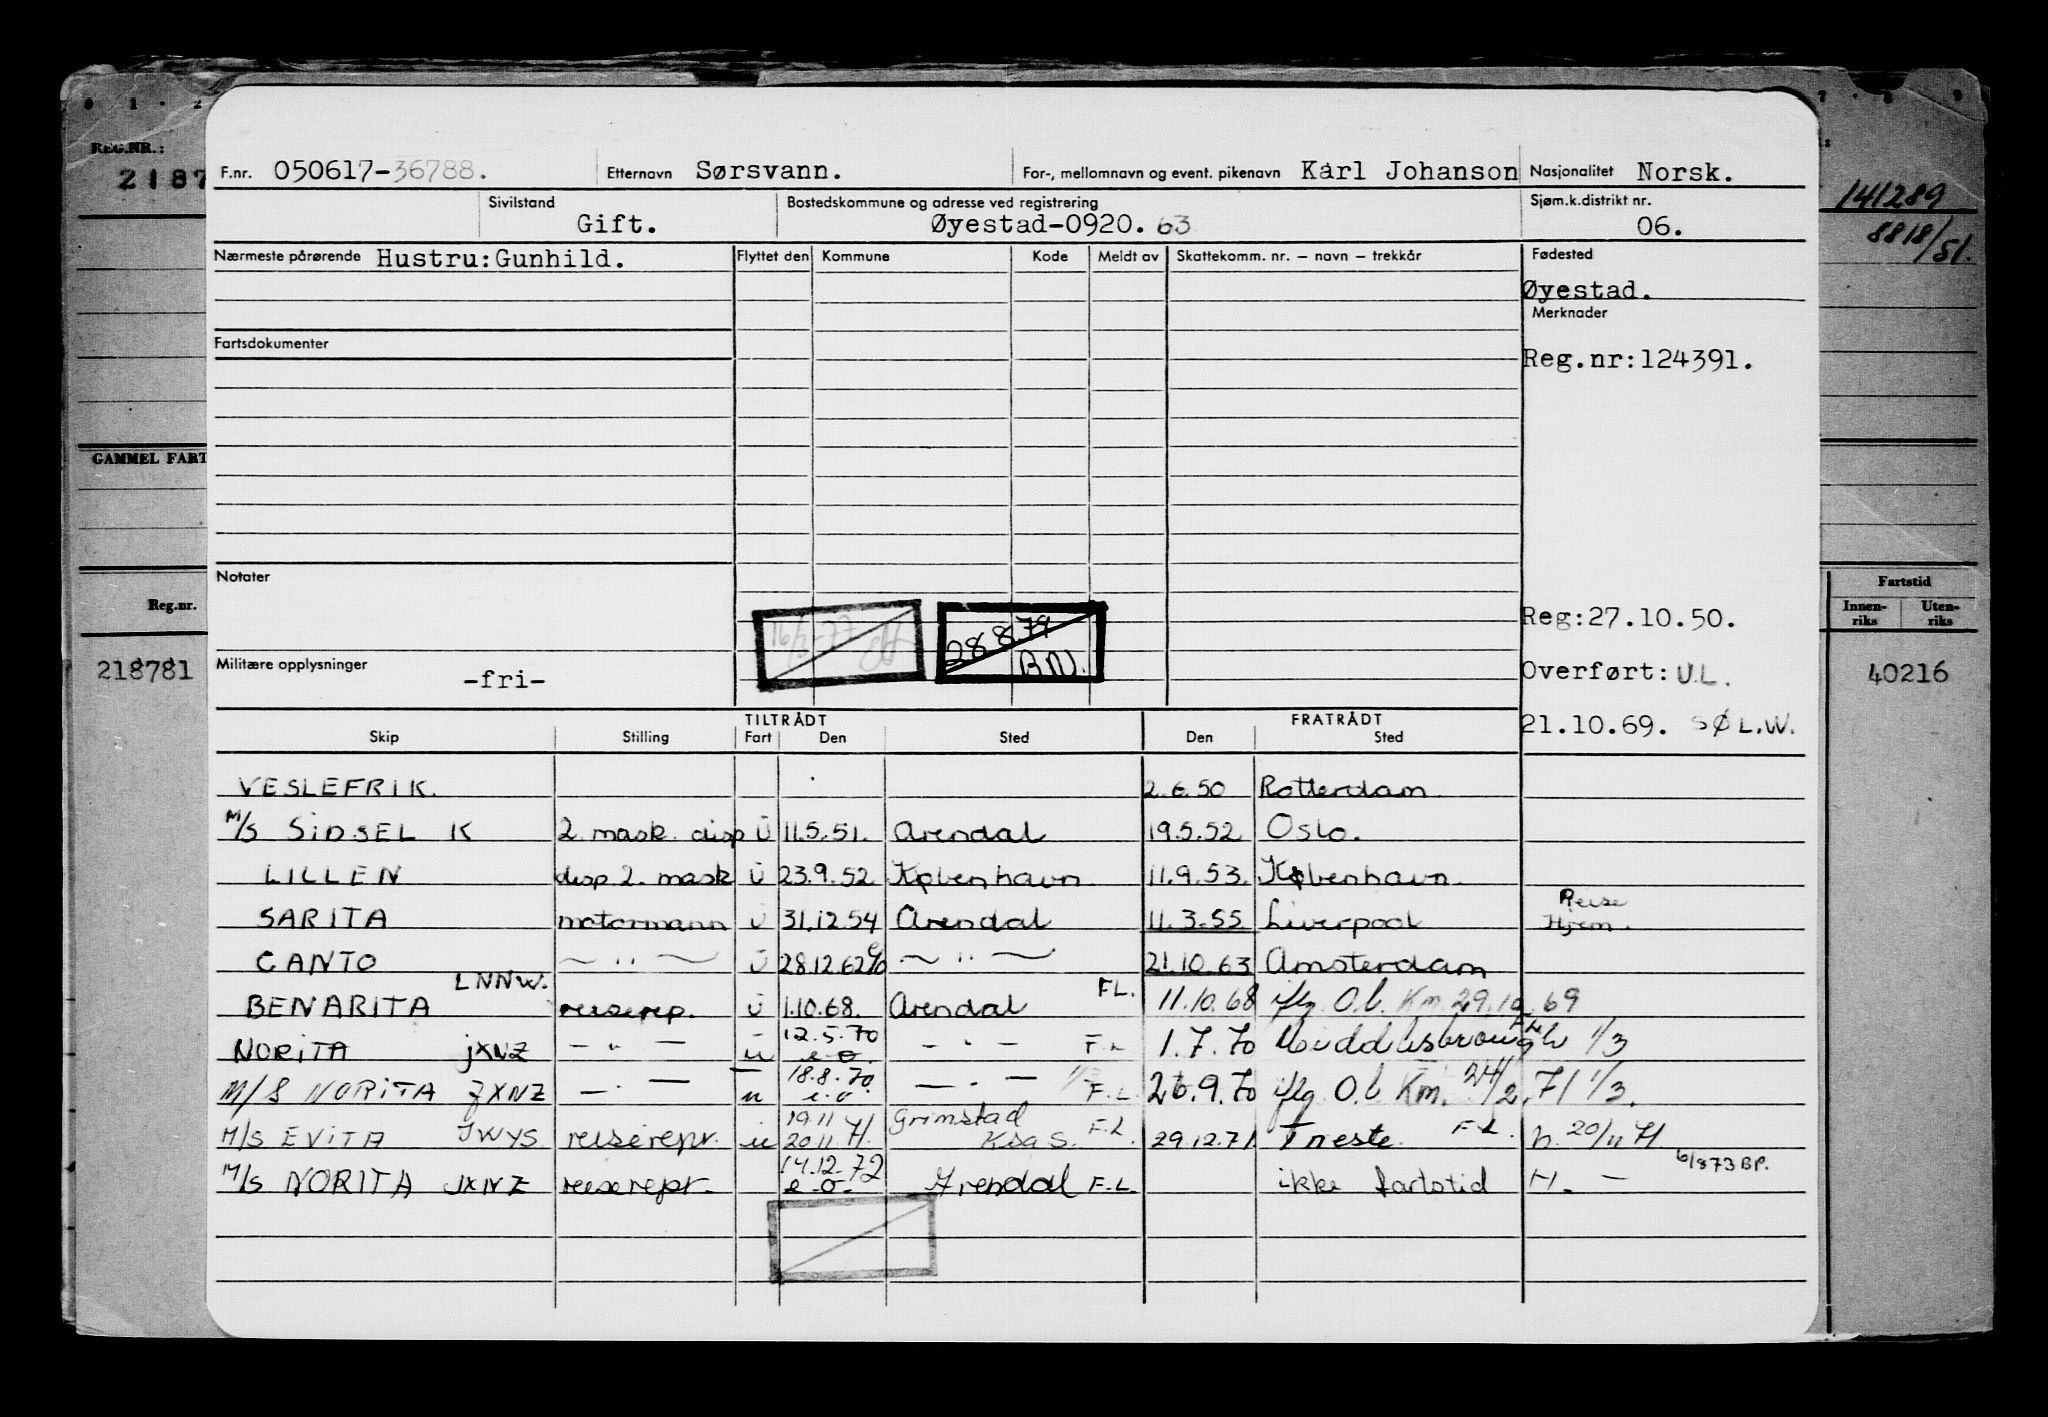 0 1 · 2
7 · 8 · 9
REG.NR.:
2187
F.nr. 050617-36788. Etternavn Sørsvann. For-, mellomnavn og event. pikenavn Karl Johanson Nasjonalitet Norsk.
141289
8818/51.
Sivilstand Gift. Bostedskommune og adresse ved registrering Øyestad-0920. 63 Sjøm.k.distrikt nr. 06.
Nærmeste pårørende Hustru: Gunhild. Flyttet den Kommune Kode Meldt av Skattekomm. nr. – navn – trekkår Fødested
Øyestad.
Merknader
Fartsdokumenter
Reg.nr:124391.
GAMMEL FART
Notater
Reg.nr. Fartstid
Innen-riks Uten-riks
16/3-77
28.8.79 B.N.
Reg:27.10.50.
Militære opplysninger -fri-
218781 Overført: U.L. 40216
21.10.69. SØ L.W.
TILTRÅDT FRATRÅDT
Skip Stilling Fart Den Sted Den Sted
VESLEFRIK. 2.6.50 Rotterdam
M/S SIDSEL K 2 mask. disp U 11.5.51. Arendal 19.5.52 Oslo.
LILLEN disp 2. mask U 23.9.52 København 11.9.53. København
SARITA motormann U 31.12.54 Arendal 11.3.55 Liverpool Reise Hjem.
CANTO — " — U 28.12.62 — " — 21.10.63 Amsterdam
BENARITA LNNW. reiserep. U 1.10.68. Arendal FL. 11.10.68 iflg. O.b. Km. 29.10.69
NORITA JXNZ — " — u 12.5.70 e.o. — " — F.L 1.7.70 Middlesbrough FL 1/3
M/S NORITA JXNZ — " — u 18.8.70 e.o — " — F.L. 26.9.70 iflg O.b Km. 24/2.71 1/3.
M/S EVITA JWYS. reiserepr. u 19.11 20.11.71. Grimstad Ksa S. F.L. 29.12.71 Trieste. F.L. h. 20/11 71
M/S NORITA JXNZ reiserepr. 14.12.72 e.o. Arendal F.L. ikke fartstid H. — 6/873 BP.